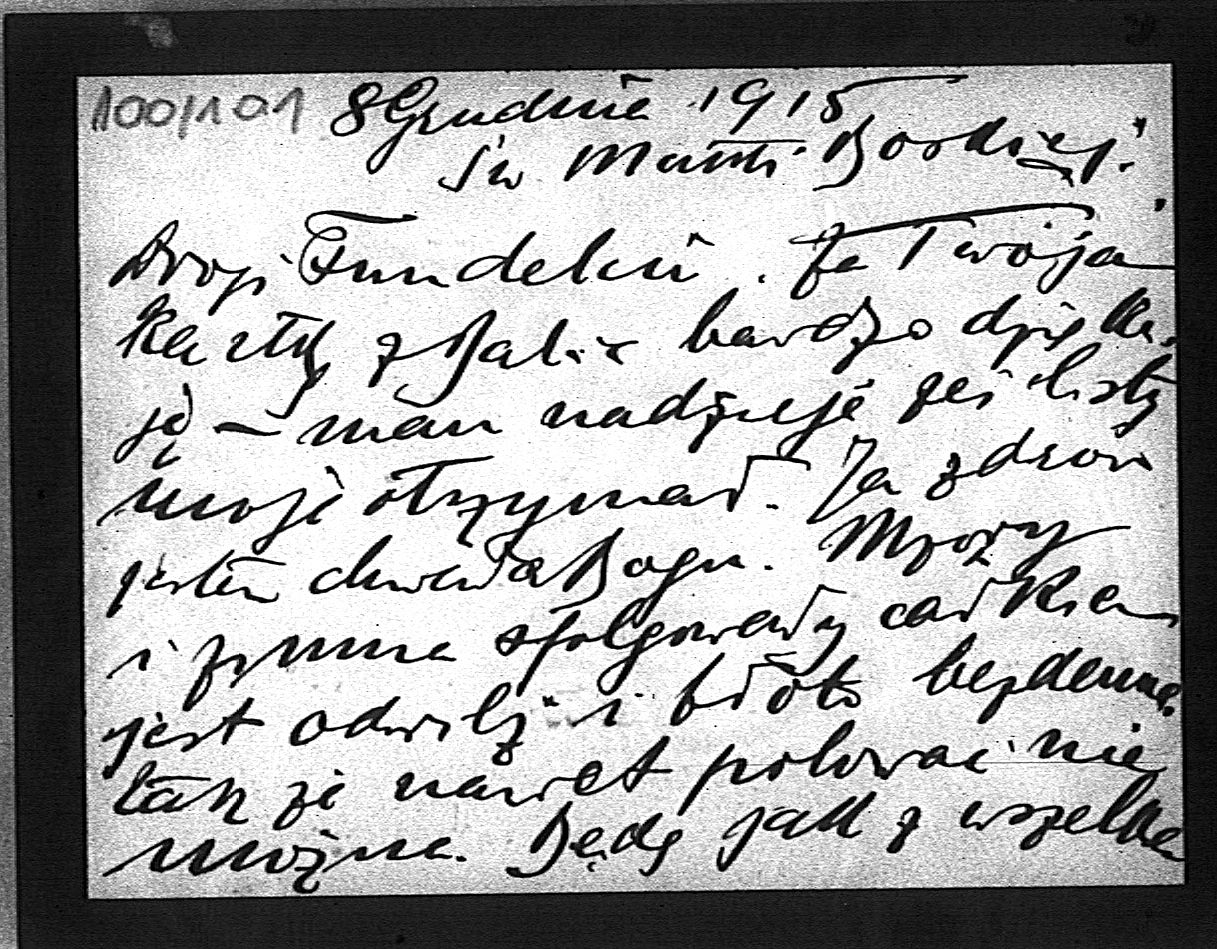 100/101 8 Grudnia 1915
Św Matki Boskiej.
Drogi Fundelciu. Za Twoja
kartkę z Balic bardzo dzięku
ję – mam nadzieje żeś listy
moje otrzymał. Ja zdrów
jestem chwała Bogu. Mrozy
i zimna sfolgowały całkiem
jest odwilż i błoto bezdenne
tak że nawet polować nie
można. Będę jak z wszelka